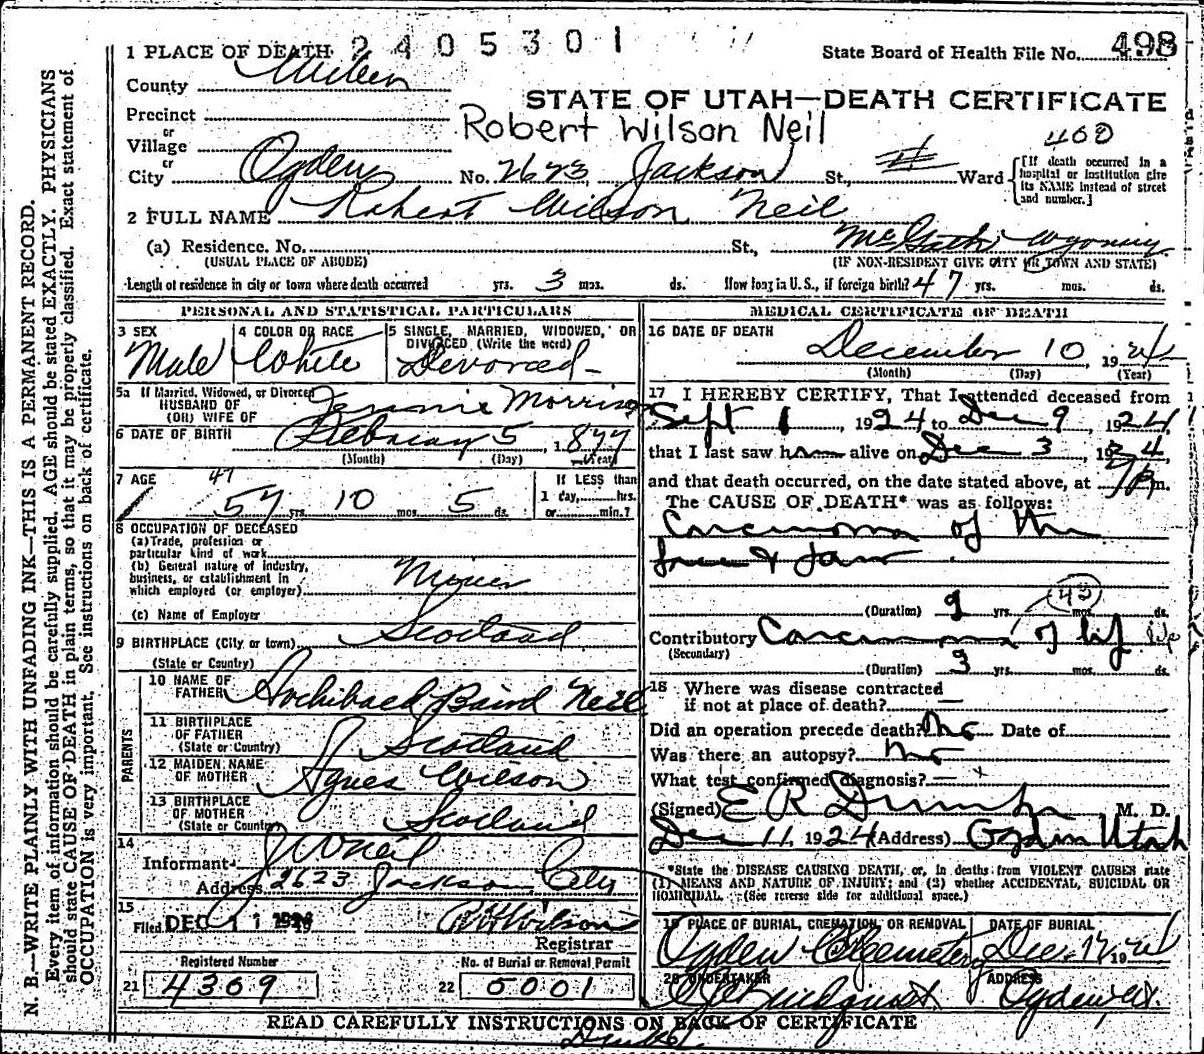 1 PLACE OF DEATH 2405301
State Board of Health File No. 498
County
STATE OF UTAH—DEATH CERTIFICATE
Precinct
or
Robert Wilson Neil
Village
or
400
City Ogden No. 2623 Jackson St, Ward
[If death occurred in a hospital or institution give its NAME instead of street and number.]
2 FULL NAME Robert Wilson Neil
(a) Residence. No. St, Wyoming
(USUAL PLACE OF ABODE) (IF NON-RESIDENT GIVE CITY OR TOWN AND STATE)
Length of residence in city or town where death occurred yrs. 3 mos. ds. How long in U.S., if foreign birth? 47 yrs. mos. ds.
PERSONAL AND STATISTICAL PARTICULARS
3 SEX Male
4 COLOR OR RACE White
5 SINGLE, MARRIED, WIDOWED, OR DIVORCED (Write the word) Devorced
5a If Married, Widowed, or Divorced
HUSBAND OF
(OR) WIFE OF Jennie Morrison
6 DATE OF BIRTH February 5, 1877
(Month) (Day) (Year)
7 AGE 47
57 yrs. 10 mos. 5 ds.
If LESS than
1 day, hrs.
or min.?
8 OCCUPATION OF DECEASED
(a) Trade, profession or
particular kind of work
(b) General nature of industry,
business, or establishment in
which employed (or employer) Miner
(c) Name of Employer
9 BIRTHPLACE (City or town) Scotland
(State or Country)
PARENTS
10 NAME OF FATHER Archibald Baird Neil
11 BIRTHPLACE OF FATHER (State or Country) Scotland
12 MAIDEN NAME OF MOTHER Agnes Wilson
13 BIRTHPLACE OF MOTHER (State or Country) Scotland
14
Informant J W Neil
Address 2623 Jackson City
15
Filed DEC 11 1924 Wilson
Registrar
Registered Number No. of Burial or Removal Permit
21 4369 22 5001
MEDICAL CERTIFICATE OF DEATH
16 DATE OF DEATH
December 10 1924
(Month) (Day) (Year)
17 I HEREBY CERTIFY, That I attended deceased from
Sept 1, 1924 to Dec 9, 1924
that I last saw him alive on Dec 3, 1924
and that death occurred, on the date stated above, at 7 P m.
The CAUSE OF DEATH* was as follows:
Carcinoma of the
face & Jaw
43
(Duration) yrs. mos. ds.
Contributory Carcinoma of lip
(Secondary)
(Duration) 3 yrs. mos. ds.
18 Where was disease contracted
if not at place of death?
Did an operation precede death? No Date of
Was there an autopsy? No
What test confirmed diagnosis?
(Signed) E R Dumke M. D.
Dec 11, 1924 (Address) Ogden Utah
*State the DISEASE CAUSING DEATH, or, in deaths from VIOLENT CAUSES state
(1) MEANS AND NATURE OF INJURY; and (2) whether ACCIDENTAL, SUICIDAL OR
HOMICIDAL. (See reverse side for additional space.)
19 PLACE OF BURIAL, CREMATION, OR REMOVAL DATE OF BURIAL
Ogden Cemetery Dec. 1924
20 UNDERTAKER ADDRESS
Lindquist Ogden, Ut.
READ CAREFULLY INSTRUCTIONS ON BACK OF CERTIFICATE
N. B.—WRITE PLAINLY WITH UNFADING INK—THIS IS A PERMANENT RECORD.
Every item of information should be carefully supplied. AGE should be stated EXACTLY. PHYSICIANS
should state CAUSE OF DEATH in plain terms, so that it may be properly classified. Exact statement of
OCCUPATION is very important. See instructions on back of certificate.